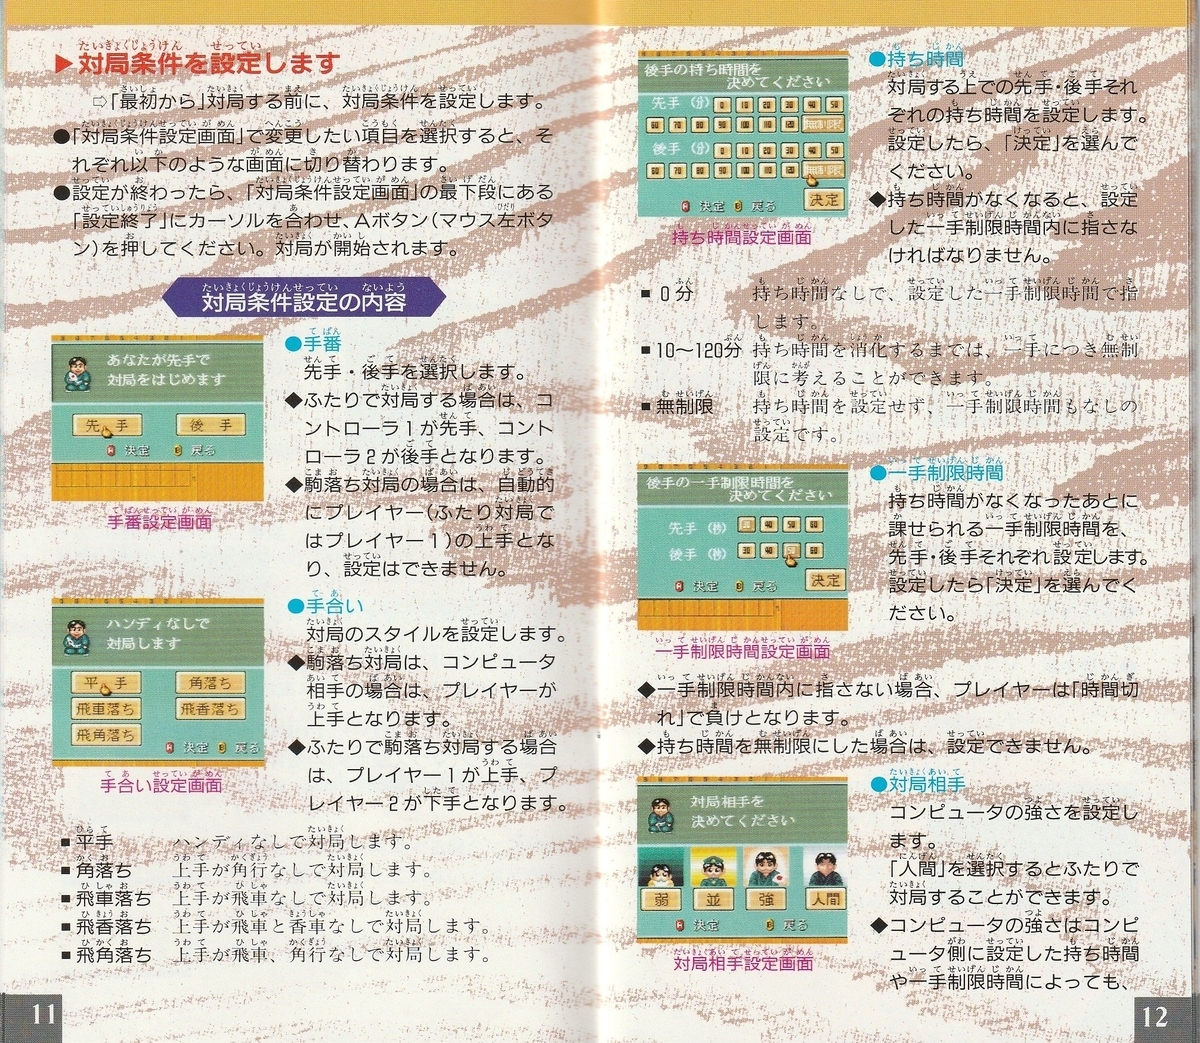 ▶対局条件を設定します
⇨「最初から」対局する前に、対局条件を設定します。
●「対局条件設定画面」で変更したい項目を選択すると、そ
れぞれ以下のような画面に切り替わります。
●設定が終わったら、「対局条件設定画面」の最下段にある
「設定終了」にカーソルを合わせ、Aボタン(マウス左ボタ
ン)を押してください。対局が開始されます。
対局条件設定の内容
あなたが先手で
対局をはじめます
先手 後手
A 決定 B 戻る
手番設定画面
●手番
先手・後手を選択します。
◆ふたりで対局する場合は、コ
ントローラ1が先手、コント
ローラ2が後手となります。
◆駒落ち対局の場合は、自動的
にプレイヤー(ふたり対局で
はプレイヤー1)の上手とな
り、設定はできません。
ハンディなしで
対局します
平手 角落ち
飛車落ち 飛香落ち
飛角落ち
A 決定 B 戻る
手合い設定画面
●手合い
対局のスタイルを設定します。
◆駒落ち対局は、コンピュータ
相手の場合は、プレイヤーが
上手となります。
◆ふたりで駒落ち対局する場合
は、プレイヤー1が上手、プ
レイヤー2が下手となります。
■平手 ハンディなしで対局します。
■角落ち 上手が角行なしで対局します。
■飛車落ち 上手が飛車なしで対局します。
■飛香落ち 上手が飛車と香車なしで対局します。
■飛角落ち 上手が飛車、角行なしで対局します。
11
後手の持ち時間を
決めてください
先手(分) 0 10 20 30 40 50
60 70 80 90 100 110 120 無制限
後手(分) 0 10 20 30 40 50
60 70 80 90 100 110 120 無制限
決定
A 決定 B 戻る
持ち時間設定画面
●持ち時間
対局する上での先手・後手それ
ぞれの持ち時間を設定します。
設定したら、「決定」を選んで
ください。
◆持ち時間がなくなると、設定
した一手制限時間内に指さな
ければなりません。
■0分 持ち時間なしで、設定した一手制限時間で指
します。
■10～120分 持ち時間を消化するまでは、一手につき無制
限に考えることができます。
■無制限 持ち時間を設定せず、一手制限時間もなしの
設定です。
後手の一手制限時間を
決めてください
先手(秒) 30 40 50 60
後手(秒) 30 40 50 60
決定
A 決定 B 戻る
一手制限時間設定画面
●一手制限時間
持ち時間がなくなったあとに
課せられる一手制限時間を、
先手・後手それぞれ設定します。
設定したら「決定」を選んでく
ださい。
◆一手制限時間内に指さない場合、プレイヤーは「時間切
れ」で負けとなります。
◆持ち時間を無制限にした場合は、設定できません。
対局相手を
決めてください
弱 並 強 人間
A 決定 B 戻る
対局相手設定画面
●対局相手
コンピュータの強さを設定し
ます。
「人間」を選択するとふたりで
対局することができます。
◆コンピュータの強さはコンピ
ュータ側に設定した持ち時間
や一手制限時間によっても、
12